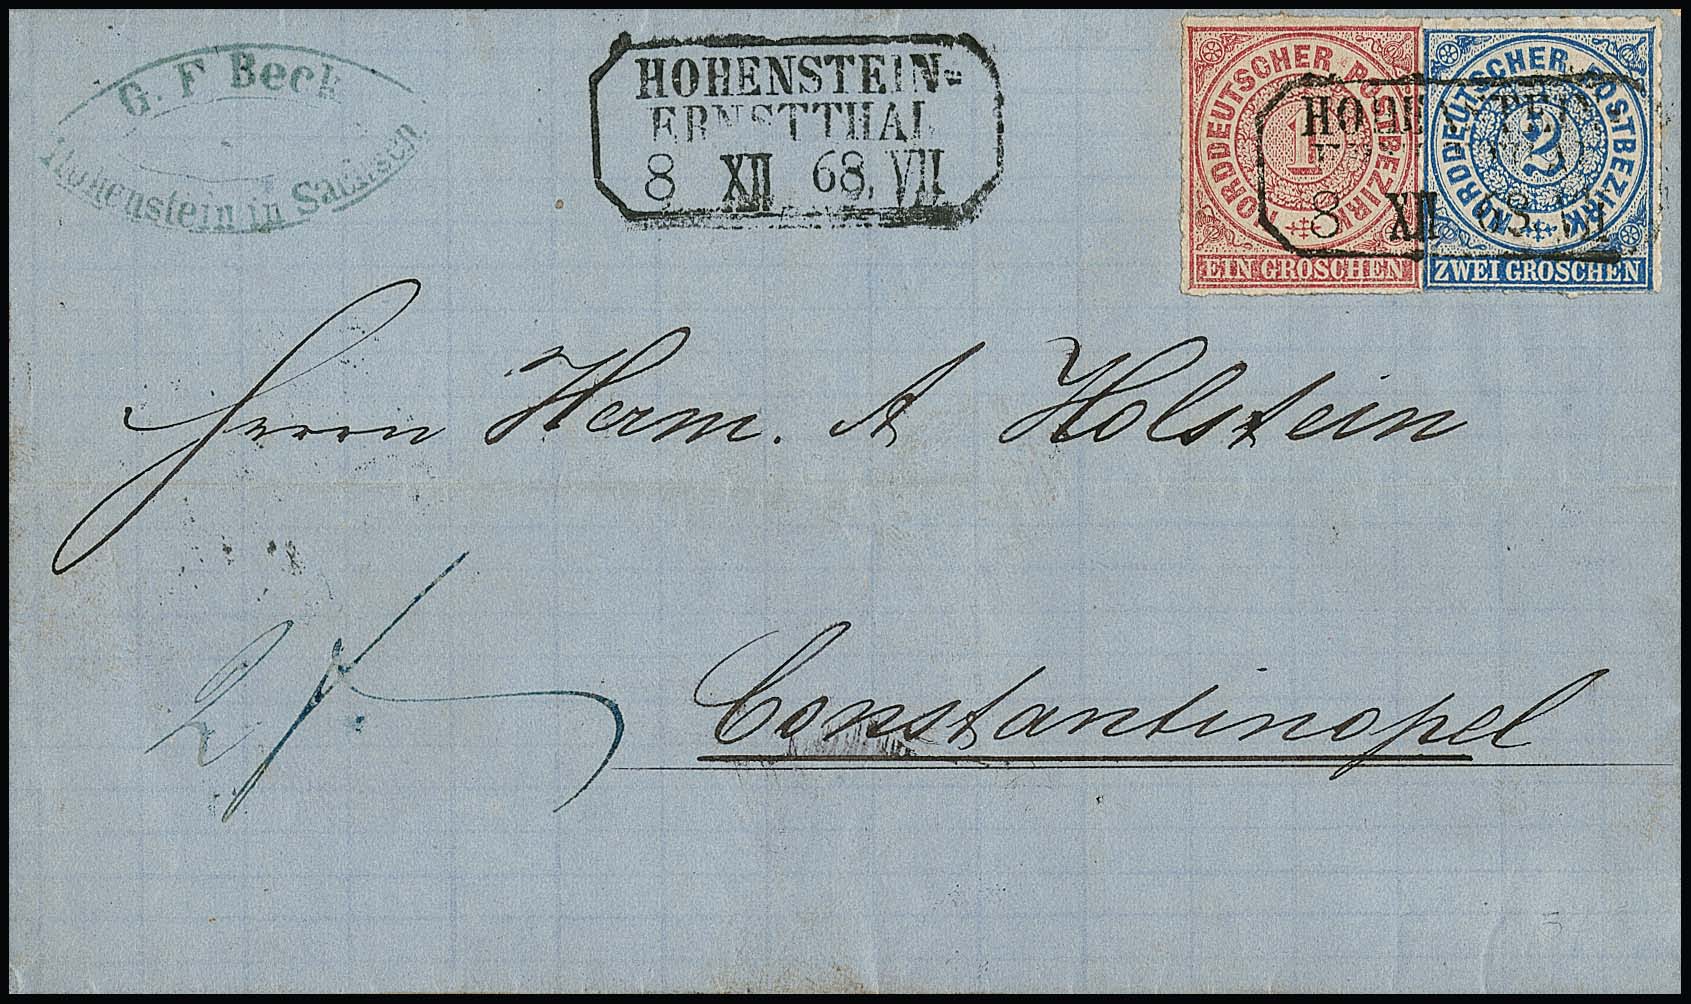 G. F Beck
Hohenstein in Sachsen
HOHENSTEIN-
ERNSTTHAL
8 XII 68. VII
NORDDEUTSCHER POSTBEZIRK
1
EIN GROSCHEN
NORDDEUTSCHER POSTBEZIRK
2
ZWEI GROSCHEN
HOHENSTEIN-
8 XII 68. VII
Herrn Herm. A Holstein
Constantinopel